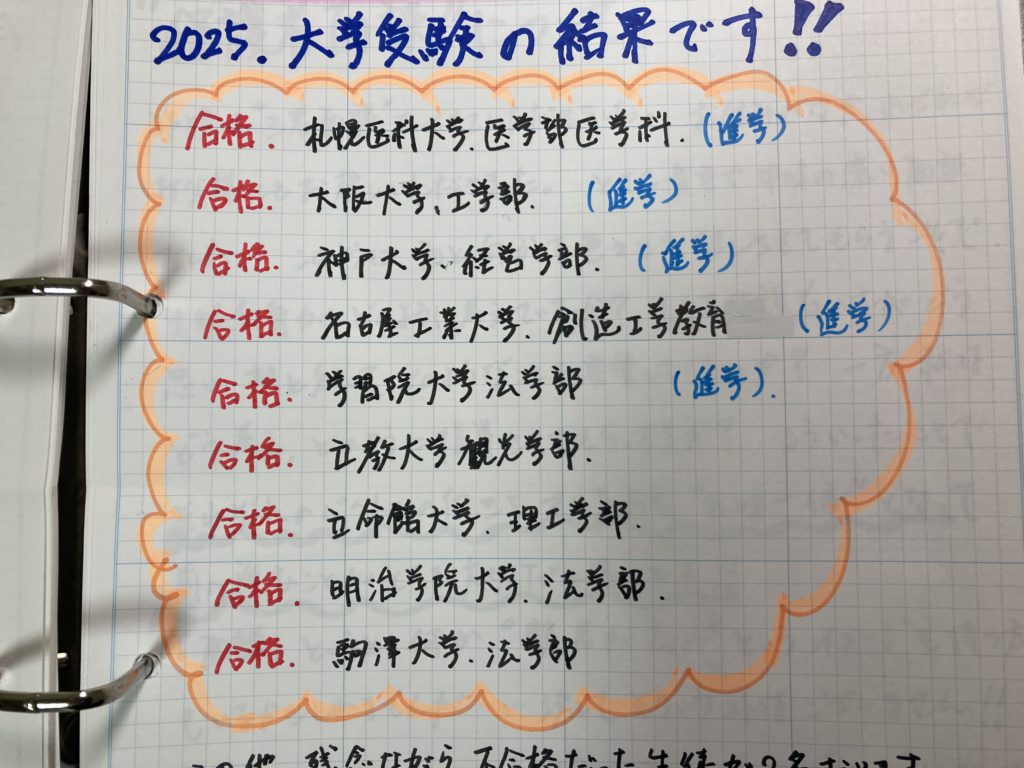 2025. 大学受験の結果です!!
合格. 札幌医科大学. 医学部医学科. (進学)
合格. 大阪大学、工学部. (進学)
合格. 神戸大学. 経営学部. (進学)
合格. 名古屋工業大学. 創造工学教育 (進学)
合格. 学習院大学法学部 (進学).
合格. 立教大学観光学部.
合格. 立命館大学. 理工学部.
合格. 明治学院大学. 法学部.
合格. 駒澤大学. 法学部
この他 残念ながら 不合格だった生徒が2名